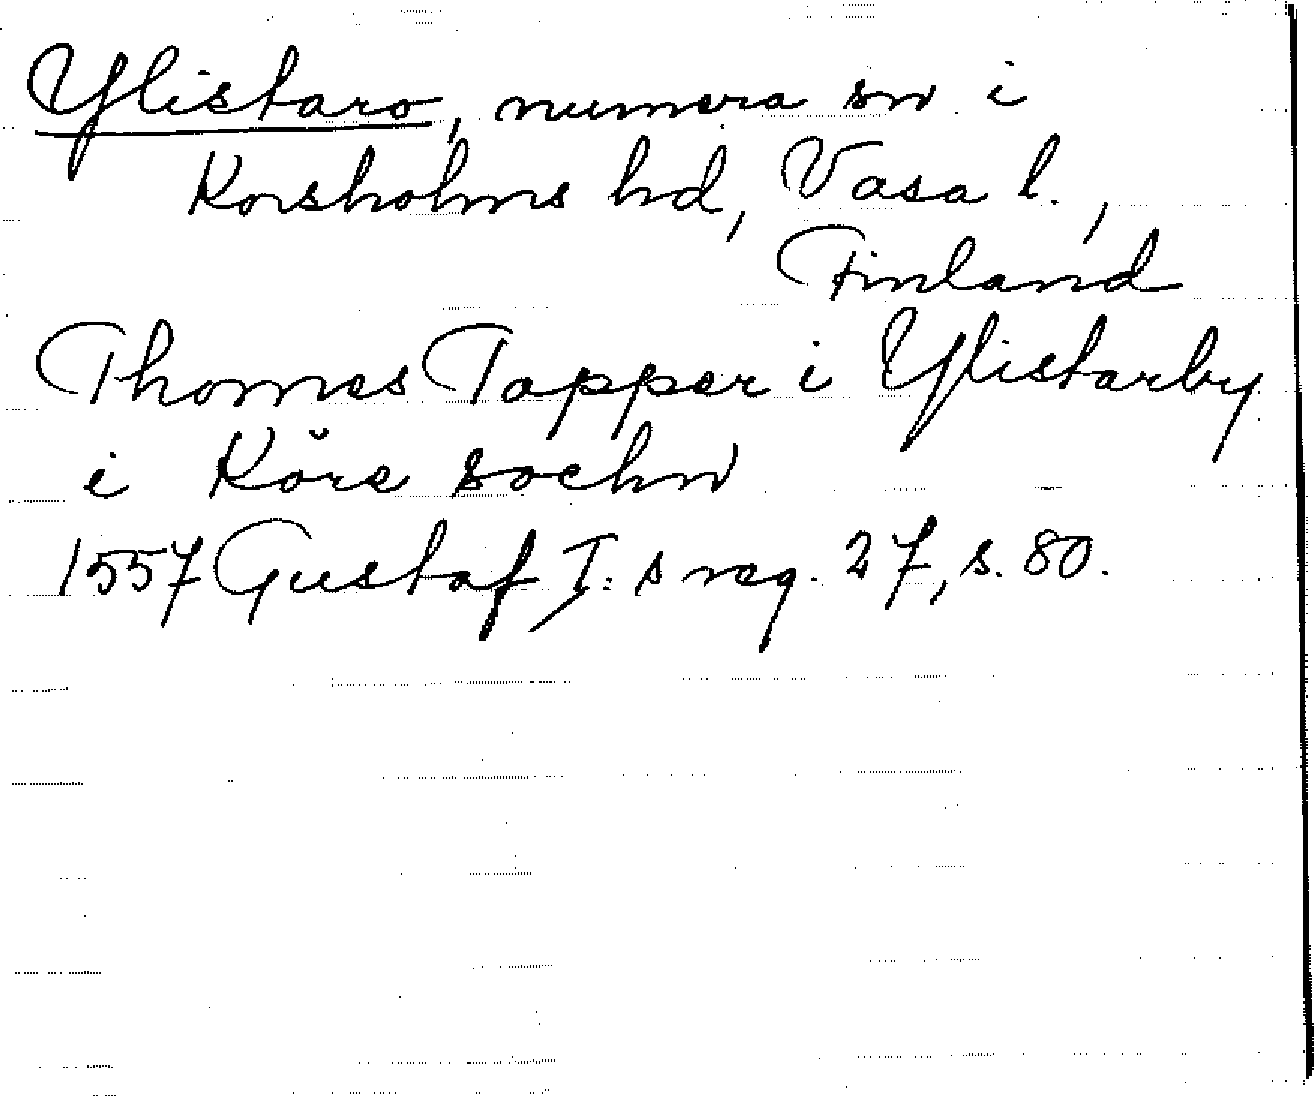 Ylistaro, numera sn i
Korsholms hd, Vasa l.,
Finland
Thomes Tapper i Ylistarby
i Köre sochn
1557 Gustaf I:s reg. 27, s. 80.